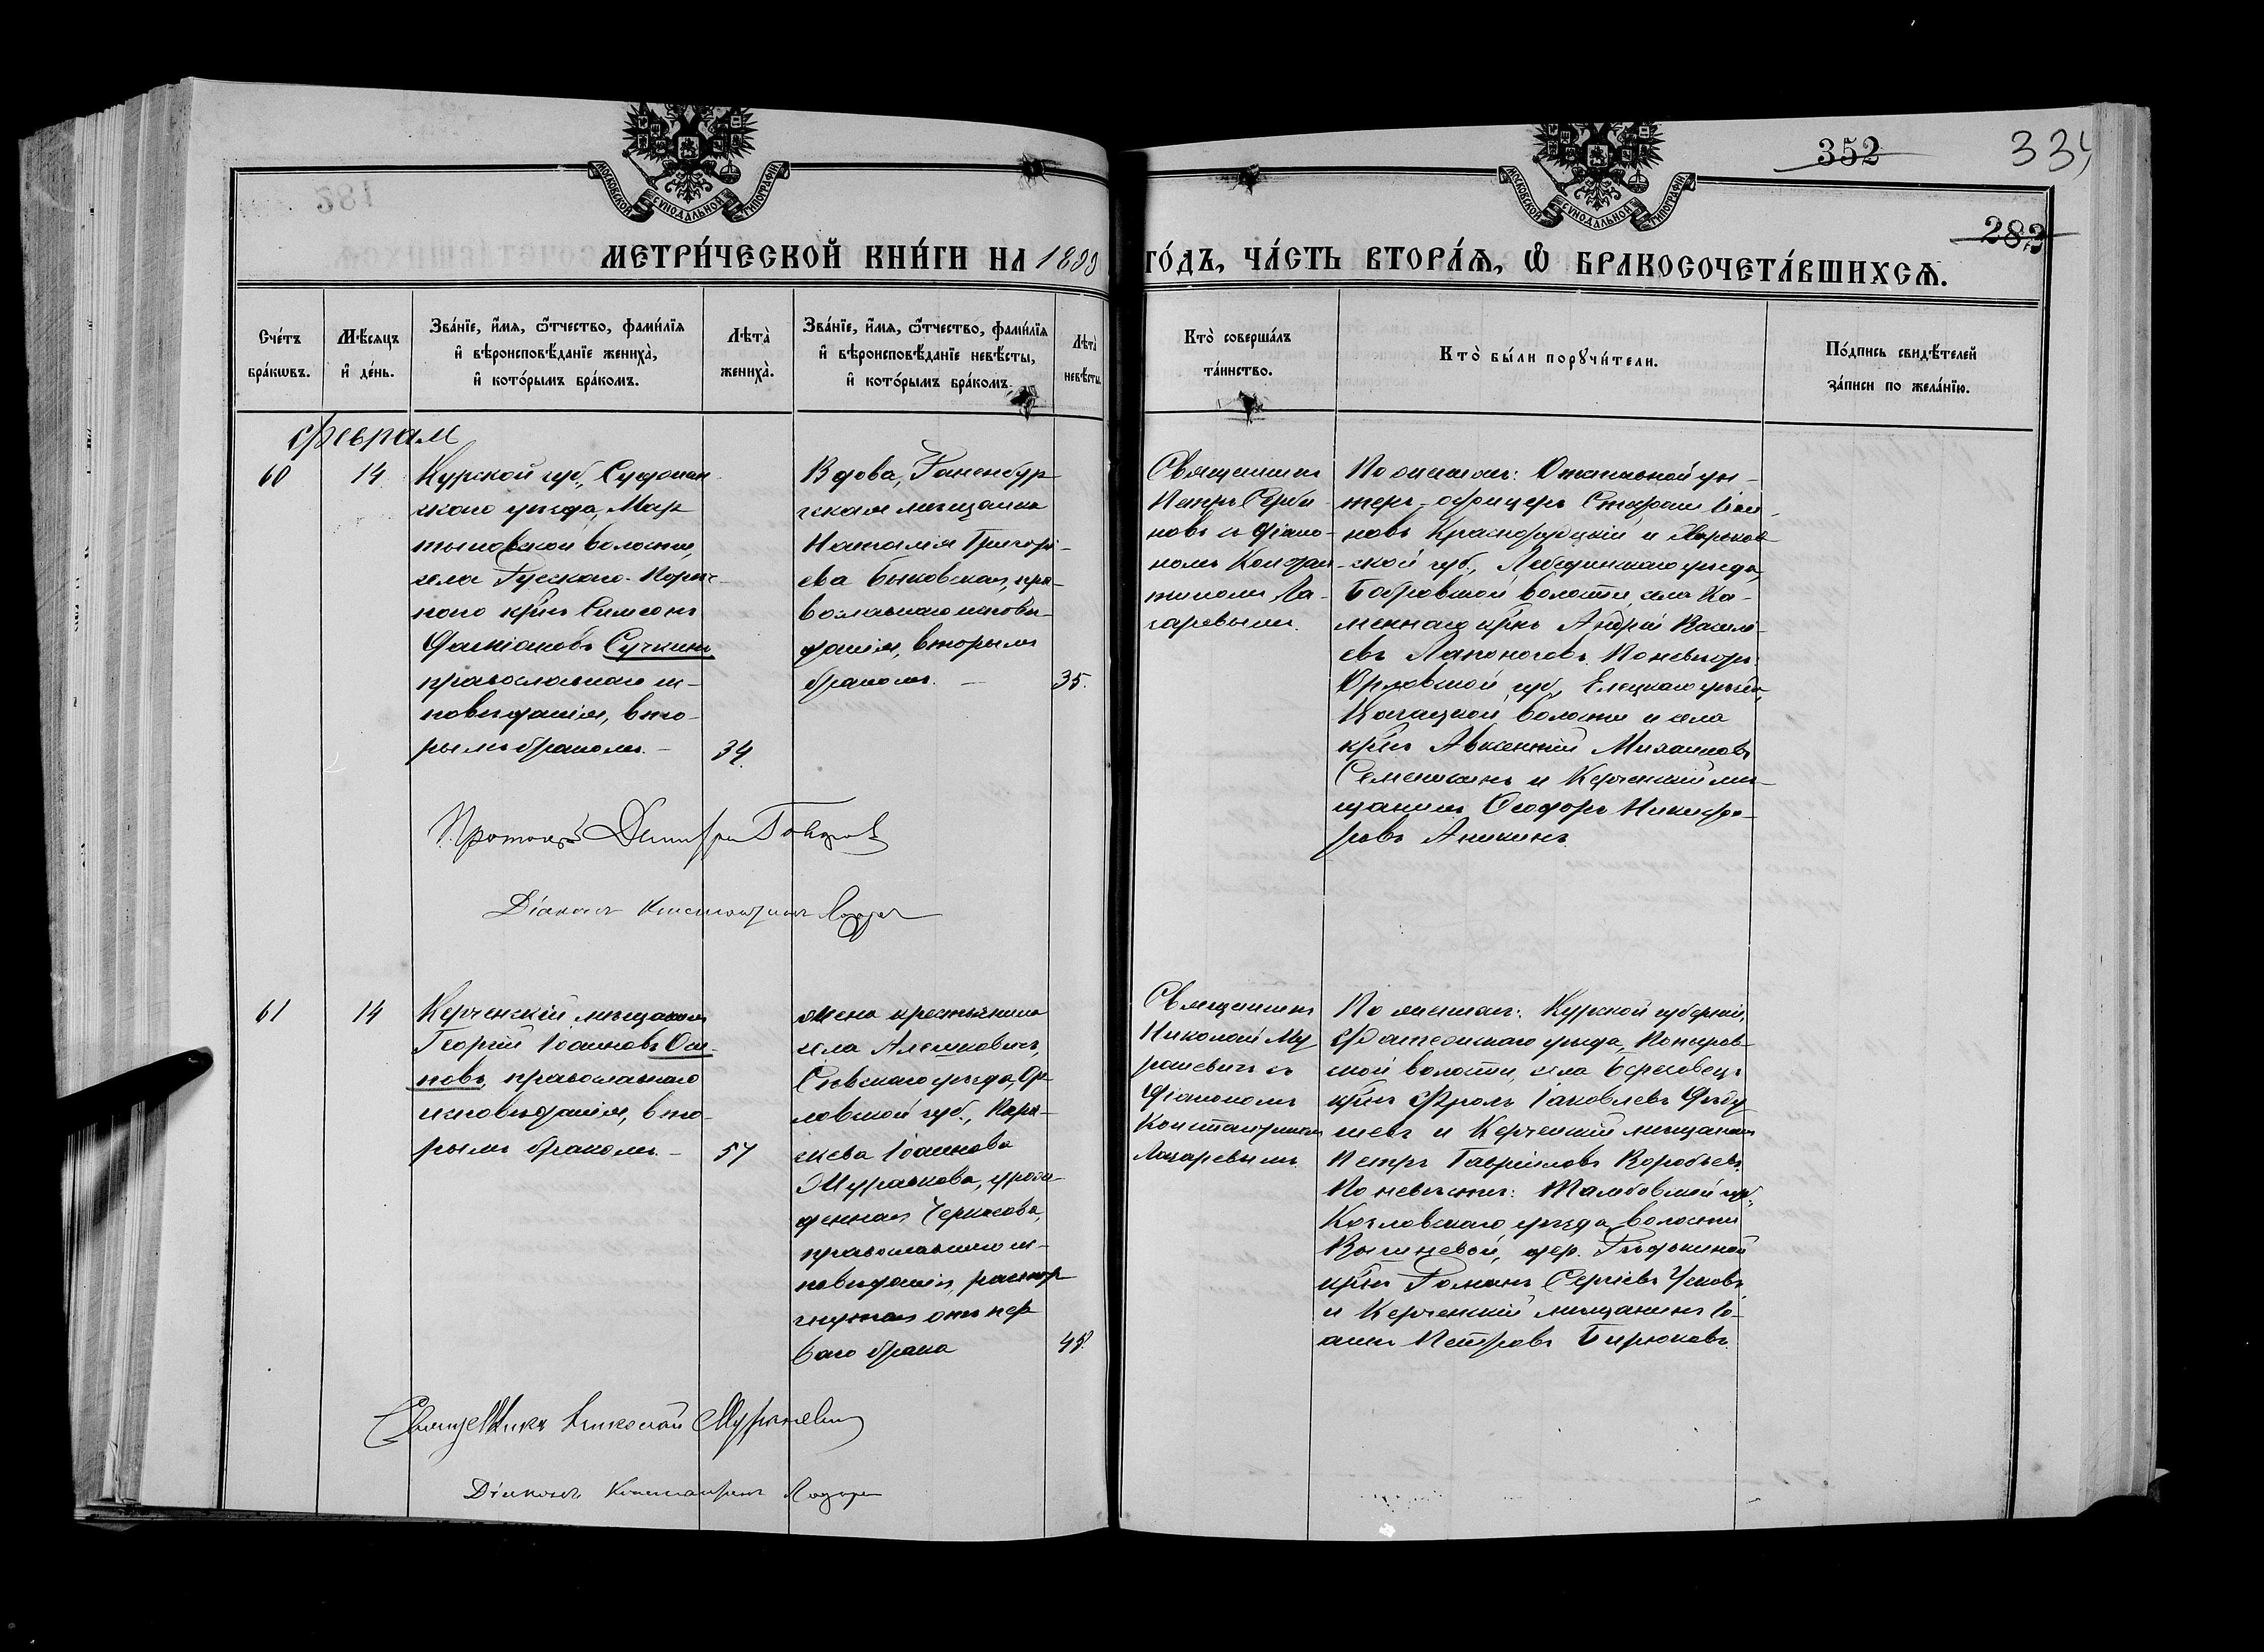 352
334
283
МОСКОВСКОЙ СѴНОДАЛЬНОЙ ТИПОГРАФІИ
МОСКОВСКОЙ СѴНОДАЛЬНОЙ ТИПОГРАФІИ
МЕТРИ́ЧЕСКОЙ КНИ́ГИ НА 1899 ГО́ДЪ, ЧА́СТЬ ВТОРА́Я, Ѡ БРАКОСОЧЕТА́ВШИХСѦ.
Сче́тъ бра́кωвъ.
Мѣ́сяцъ и҆ де́нь.
Зва́нїе, и҆́мя, ѻ҆́тчество, фами́лїя
и҆ вѣроисповѣ́данїе жениха̀,
и҆ кото́рымъ бра́комъ.
Лѣта̀ жениха̀.
Зва́нїе, и҆́мя, ѻ҆́тчество, фами́лїя
и҆ вѣроисповѣ́данїе невѣ́сты,
и҆ кото́рымъ бра́комъ.
Лѣта̀ невѣ́сты.
Кто̀ соверша́лъ
та́инство.
Кто̀ бы́ли порꙋчи́тели.
По́дпись свидѣ́телей
за́писи по жела́нїю.
Февраль
60
14
Курской губ., Суджан-
скаго уѣзда, Мар-
тыновской волости,
села Русскаго-Пореч-
наго кр-нъ Симеонъ
Даміановъ Сучкинъ
православнаго ис-
повѣданія, вто-
рымъ бракомъ. -
34.
Вдова, Раненбур-
гская мѣщанка
Наталія Григорі-
ева Быковская, пра-
вославнаго исповѣ-
данія, вторымъ
бракомъ. -
35.
Священникъ
Петръ Серби-
новъ съ діако-
номъ Констан-
тиномъ Ла-
заревымъ.
По женихѣ: Отставной ун-
теръ-офицеръ Стефанъ Іоан-
новъ и Харьков-
ской губ., Лебединскаго уѣзда,
волости, села Ка-
меннаго кр-нъ Андрей Василь-
евъ Лапоноговъ. По невѣстѣ:
Орловской губ., Елецкаго уѣзда,
Казацкой волости и села
кр-нъ Авксентій Михаиловъ
Семенихинъ и Керченскій мѣ-
щанинъ Ѳеодоръ Никифо-
ровъ Аникинъ.
Протоіерей Димитрій
Діаконъ Константинъ Лазарев
61
14
Керченскій мѣщанинъ
Георгій Іоанновъ Оси-
повъ, православнаго
исповѣданія, вто-
рымъ бракомъ. -
57
Жена крестьянина
села Алешковичъ,
Сѣвскаго уѣзда, Ор-
ловской губ., Пара-
скева Іоаннова
Журавкова, урож-
денная Черкасова,
православнаго ис-
повѣданія, растор-
гнутая отъ пер-
ваго брака
48.
Священникъ
Николай Му-
рашевичъ съ
діакономъ
Константиномъ
Лазаревымъ.
По женихѣ: Курской губерніи,
Фатежскаго уѣзда, Поныров-
ской волости, села Березовецъ
кр-нъ Фролъ Іаковлевъ
и Керченскій мѣщанинъ
Петръ Гавриловъ Воробьевъ.
По невѣстѣ: Тамбовской губ.
Козловскаго уѣзда, волости
дер.
кр-нъ Романъ Сергіевъ Усковъ
и Керченскій мѣщанинъ Іо-
аннъ Петровъ Бирюковъ.
Священникъ Николай Мурашевичъ
Діаконъ Константинъ Лазарев